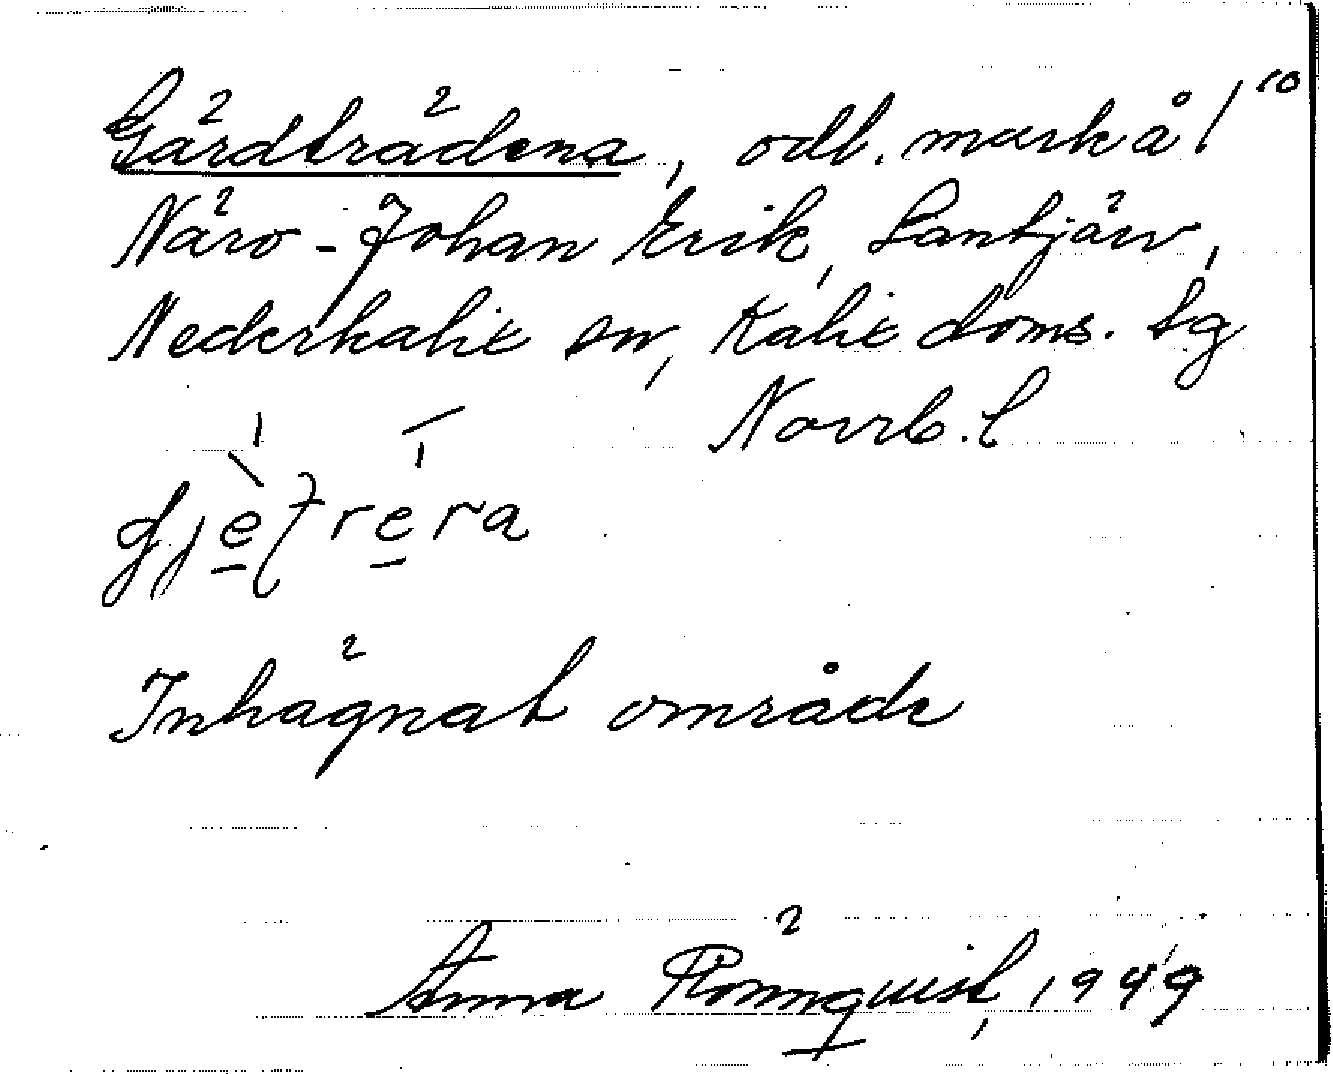 Gärdträdena, odl. mark å /10
Näro-Johan Erik, Lantjärv,
Nederkalix sn, Kalix doms. tg
Norrb. l
Inhägnat område
Anna Rönnquist, 1949